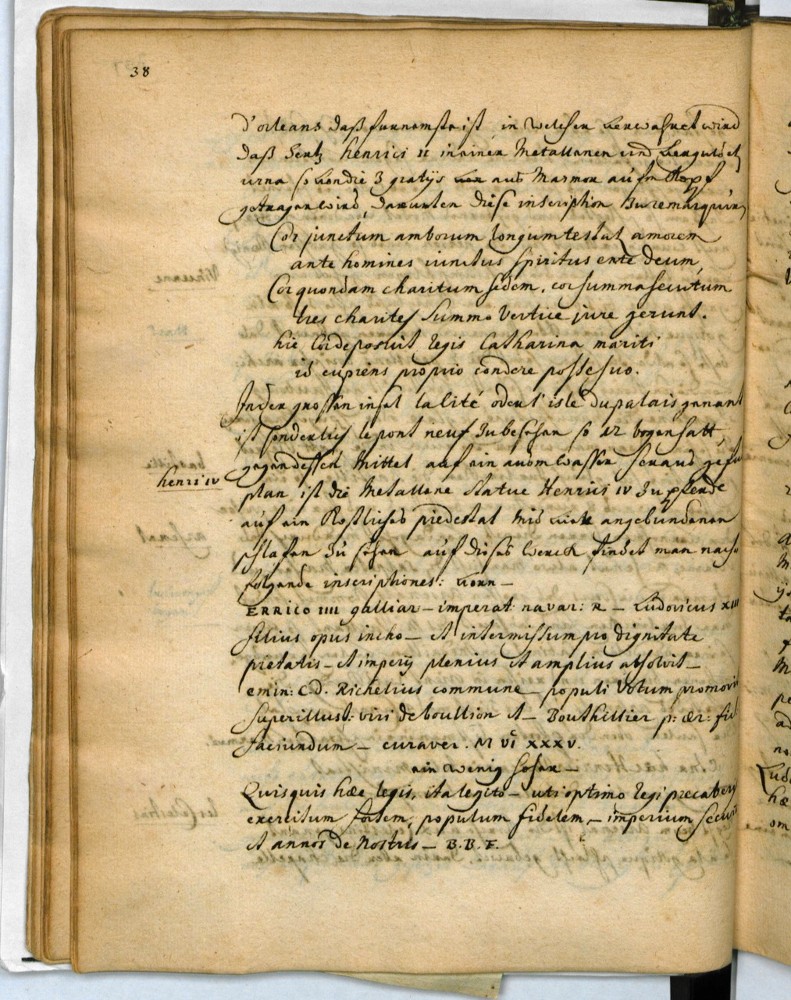 38
d'orleans daß furnemste ist, in welcher bewahret wird
daß Hertz henrici II in einer Metallenen und
urna so von die 3 gratijs aus Marmor auf'm Kopf
getragen wird, darunten diese inscription zu remarquiren
Cor junctum amborum longum testat amorem
ante homines iunctus spiritus ente deum,
Cor quondam charitum sedem, cor summa secutum
tres charites summo vertice jure gerunt.
hic Cor deposuit Regis Catharina mariti
id cupiens proprio condere posse suo.
In der grossen insel la Cité oder l'isle du palais genant
ist sonderlich le pont neuf zu besehen so 12 bogen hatt,
gegen dessen Mittel auf ein auom wasser heraus
henri IV
plan ist die Metallene statue Henrici IV zu pferde
auf ein Köstliches piedestal mit angebundenen
sclafen zu sehen auf dieses werck findet man nach
folgende inscriptiones: vorn –
ERRICO IIII galliar – imperat navar: R – Ludovicus XIII
filius opus incho – et intermissum pro dignitate
pietatis – et imperij plenius et amplius absolvit –
emin: C.D. Richelius commune – populi votum promovit
super illust: viri de boullion et – Bouthillier p: ær: fi
faciundum – curaver. M VI XXXV.
ein wenig höher –
Quisquis hæc legis, ita legito – uti optimo regi precaberis
exercitum fortem, populum fidelem, – imperium secur
et annos de Nostris – B.B.F.